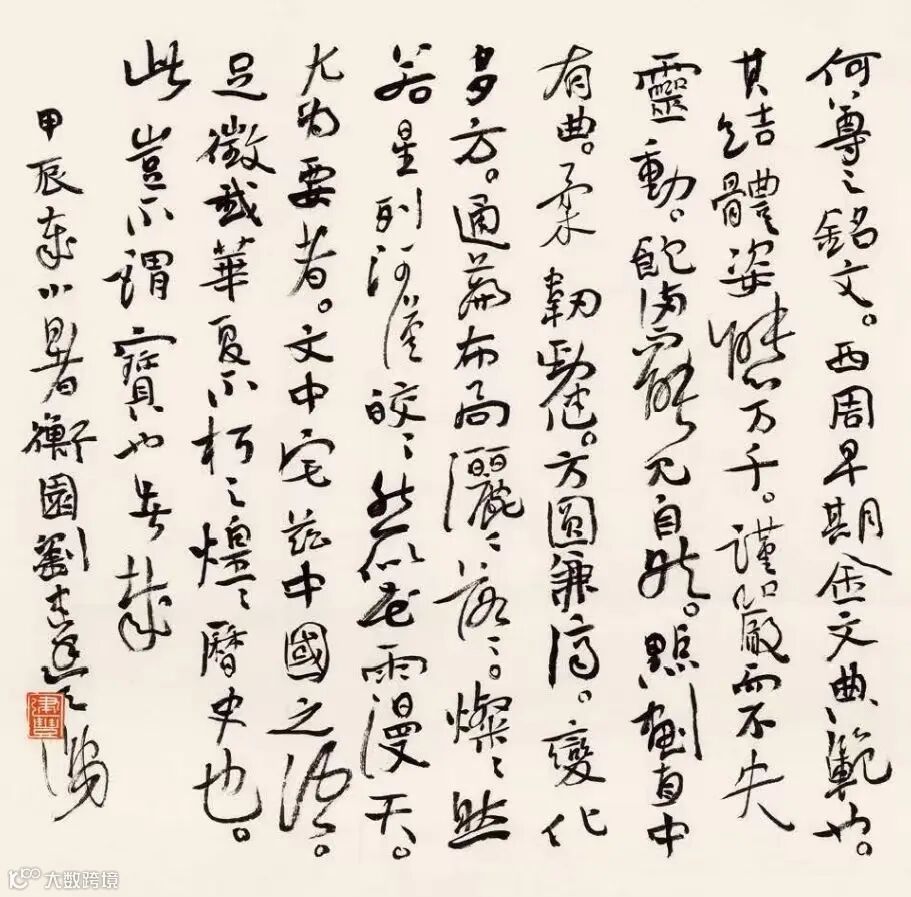 何尊之銘文。西周早期金文典範也。
其結體姿態万千。謹嚴而不失
靈動。飽滿自然。點劃直中
有曲。柔韌勁健。方圓兼濟。變化
多方。通篇布局灑〻落〻。燦〻然
若星列河漢皎〻然似花雨漫天。
尤為要者。文中宅茲中國之語。
足徵我華夏不朽之煌〻曆史也。
此豈不謂寶也哉
甲辰年小暑衡園劉
大数跨境